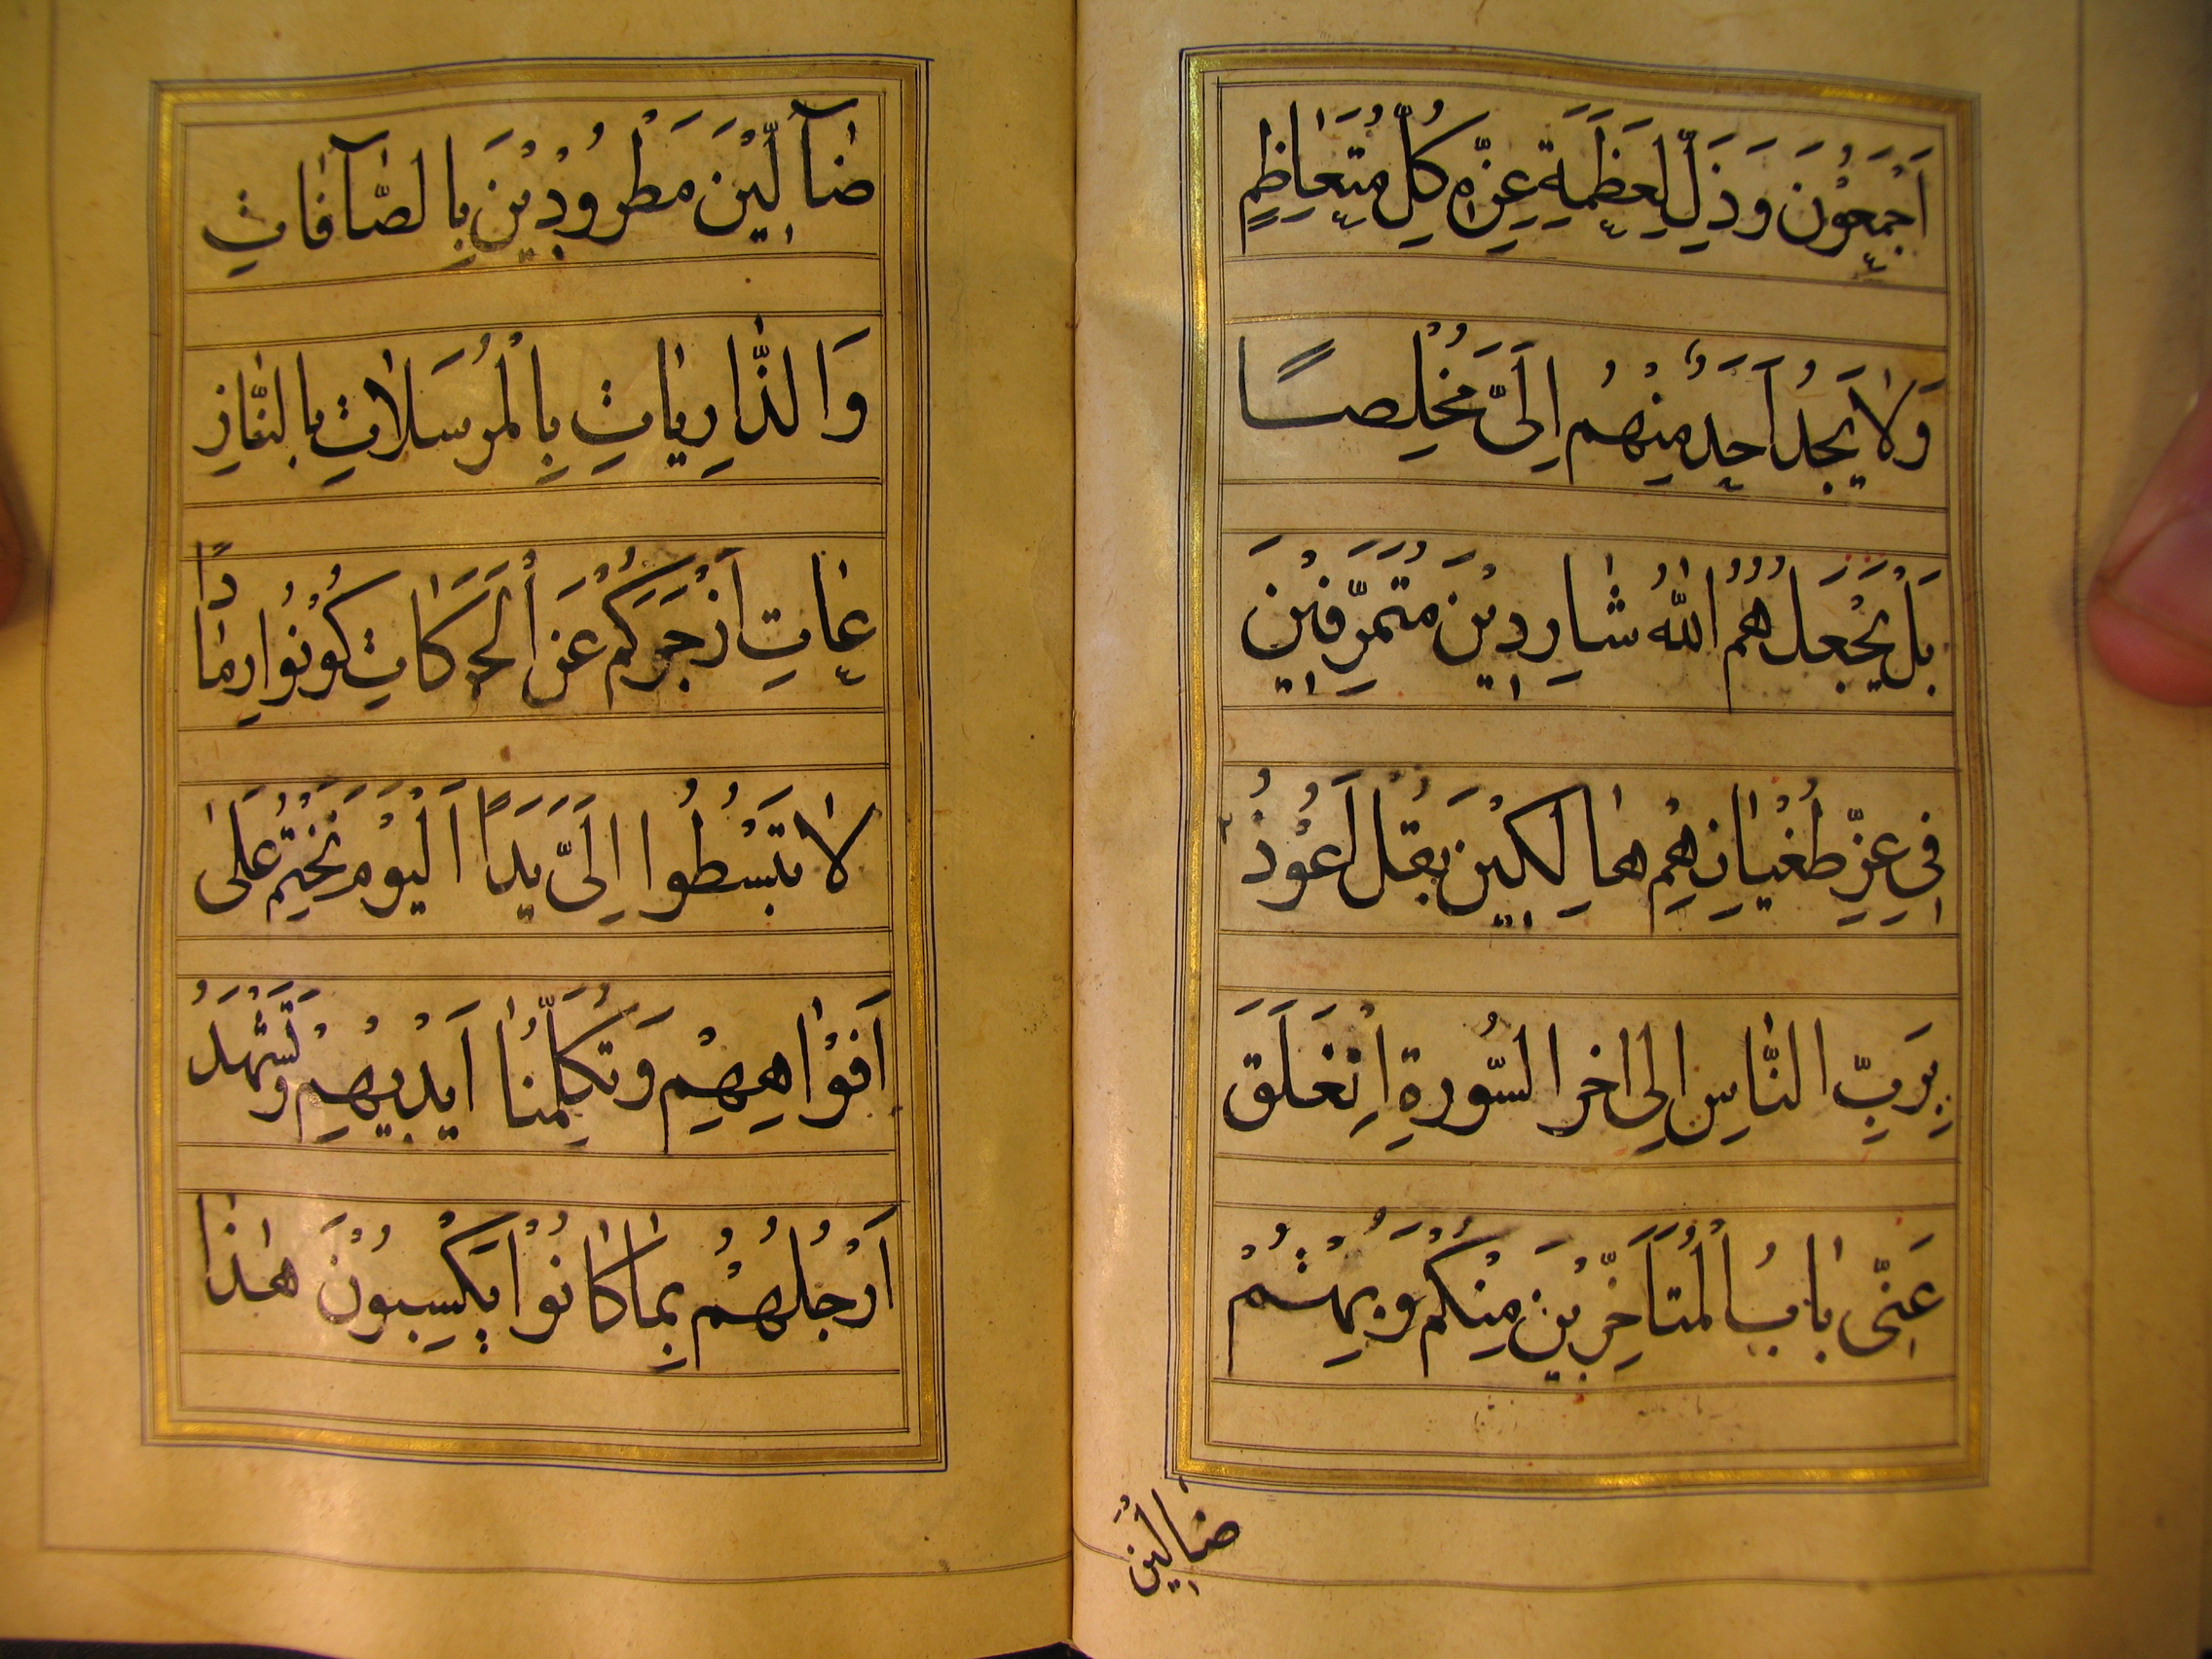 اَجْمَعُوْنَ وَذَلَّ لِعَظَمَةِ عِزِّهِ كُلُّ مُتَعَاظِمٍ
وَلَا يَجِدُ اَحَدٌ مِنْهُمْ اِلَيَّ مُخْلِصًا
بَلْ يَجْعَلُهُمُ اللّٰهُ شَارِدِيْنَ مُتَمَرِّقِيْنَ
فِي عِزِّ طُغْيَانِهِمْ هَالِكِيْنَ بِقُلْ اَعُوْذُ
بِرَبِّ النَّاسِ اِلى اخر السُّورةِ اِنْغَلَقَ
عَنِّى بَابُ الْمُتَاَخِّرِيْنَ مِنْكُمْ وَبِهِتُّمْ
ضَالِّيْنَ
ضَآلِّيْنَ مَطْرُوْدِيْنَ بِالصَّآفَاتِ
وَالذَّارِيَاتِ بِالْمُرْسَلَاتِ بِالنَّازِ
عَاتِ اَزْجُرُكُمْ عَنِ الْحَرَكَاتِ كُوْنُوْا رِمَادًا
لَا تَبْسُطُوا اِلَيَّ يَدًا اَلْيَوْمَ نَخْتِمُ عَلٰى
اَفْوَاهِهِمْ وَتُكَلِّمُنَا اَيْدِيْهِمْ وَتَشْهَدُ
اَرْجُلُهُمْ بِمَا كَانُوْا يَكْسِبُوْنَ هٰذَا